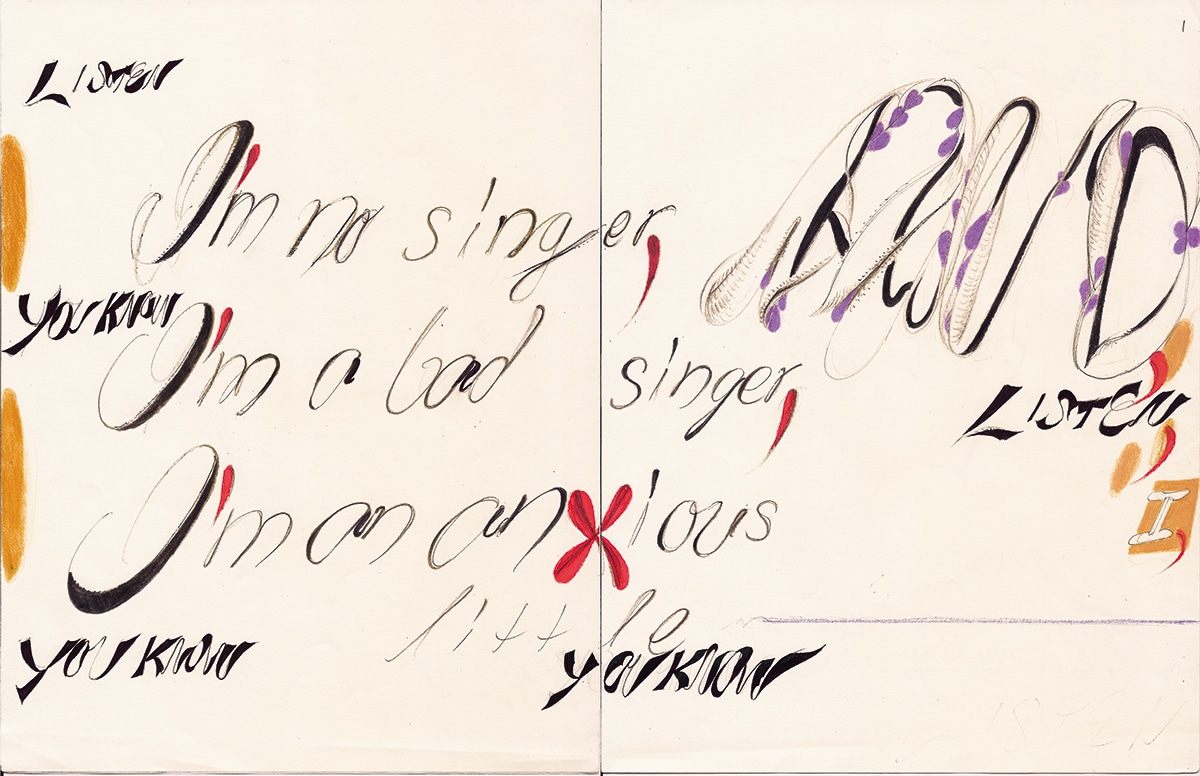 1
LISTEN
I'm no singer,
AND
YOU KNOW
I'm a bad singer,
LISTEN,
I'm an anxious
I,
little
YOU KNOW
YOU KNOW